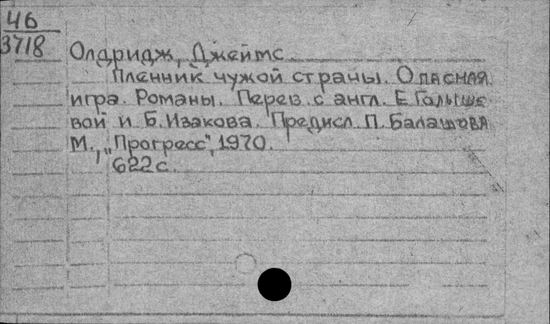 46
3718
Олдридж, Джеймс
Пленник чужой страны. Опасная
игра. Романы. Перев. с англ. Е. Голыше
вой и Б. Изакова. Предисл. П. Балашова
М., "Прогресс", 1970.
622 с.